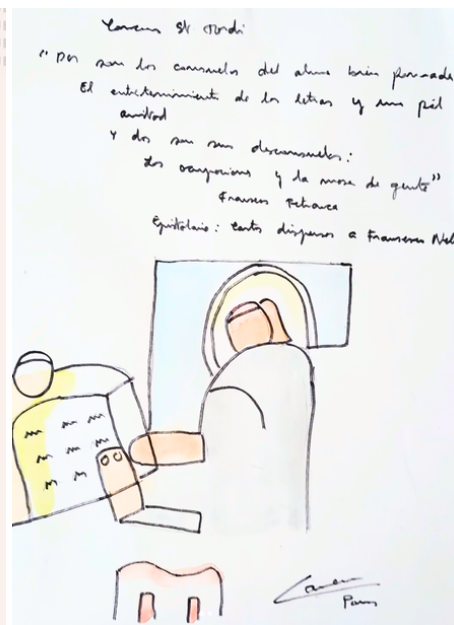 St Jordi
"Dos son los consuelos del alma bien formada
El entretenimiento de las letras y una fiel
amistad
Y dos son sus desconsuelos:
Las ocupaciones y la masa de gente"
Francesco Petrarca
Epistolario: Cartas dispersas a Francesco Nel
Carmen